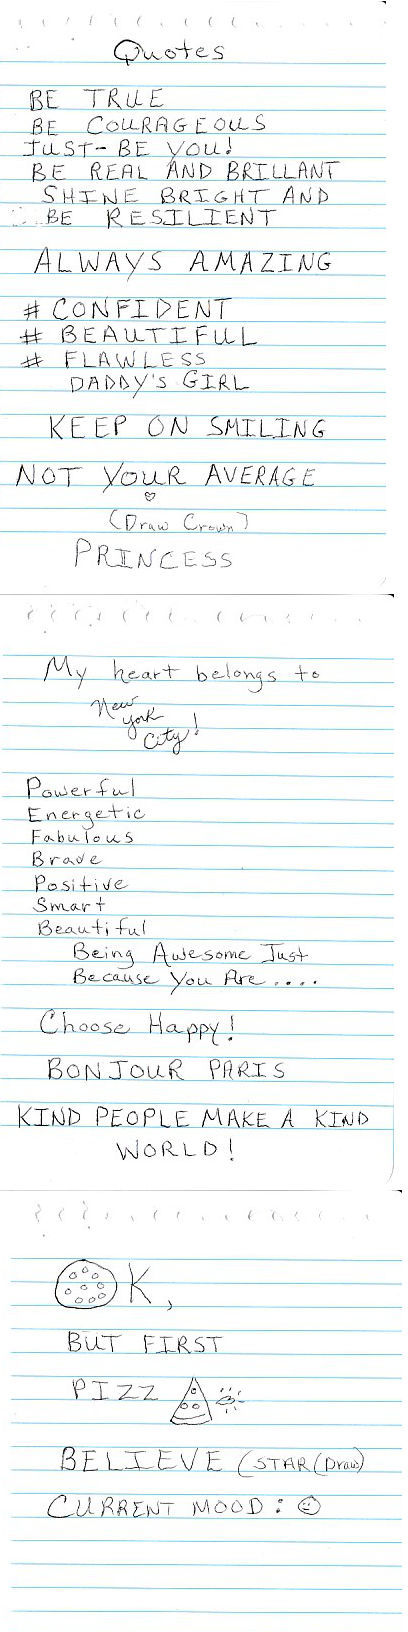 Quotes
BE TRUE
BE COURAGEOUS
JUST-BE YOU!
BE REAL AND BRILLANT
SHINE BRIGHT AND
BE RESILIENT
ALWAYS AMAZING
# CONFIDENT
# BEAUTIFUL
# FLAWLESS
DADDY'S GIRL
KEEP ON SMILING
NOT YOUR AVERAGE
(Draw Crown)
PRINCESS
My heart belongs to
New
York
City!
Powerful
Energetic
Fabulous
Brave
Positive
Smart
Beautiful
Being Awesome Just
Because You Are....
Choose Happy!
BONJOUR PARIS
KIND PEOPLE MAKE A KIND
WORLD!
OK,
BUT FIRST
PIZZA
BELIEVE (STAR (Draw)
CURRENT MOOD: ☺